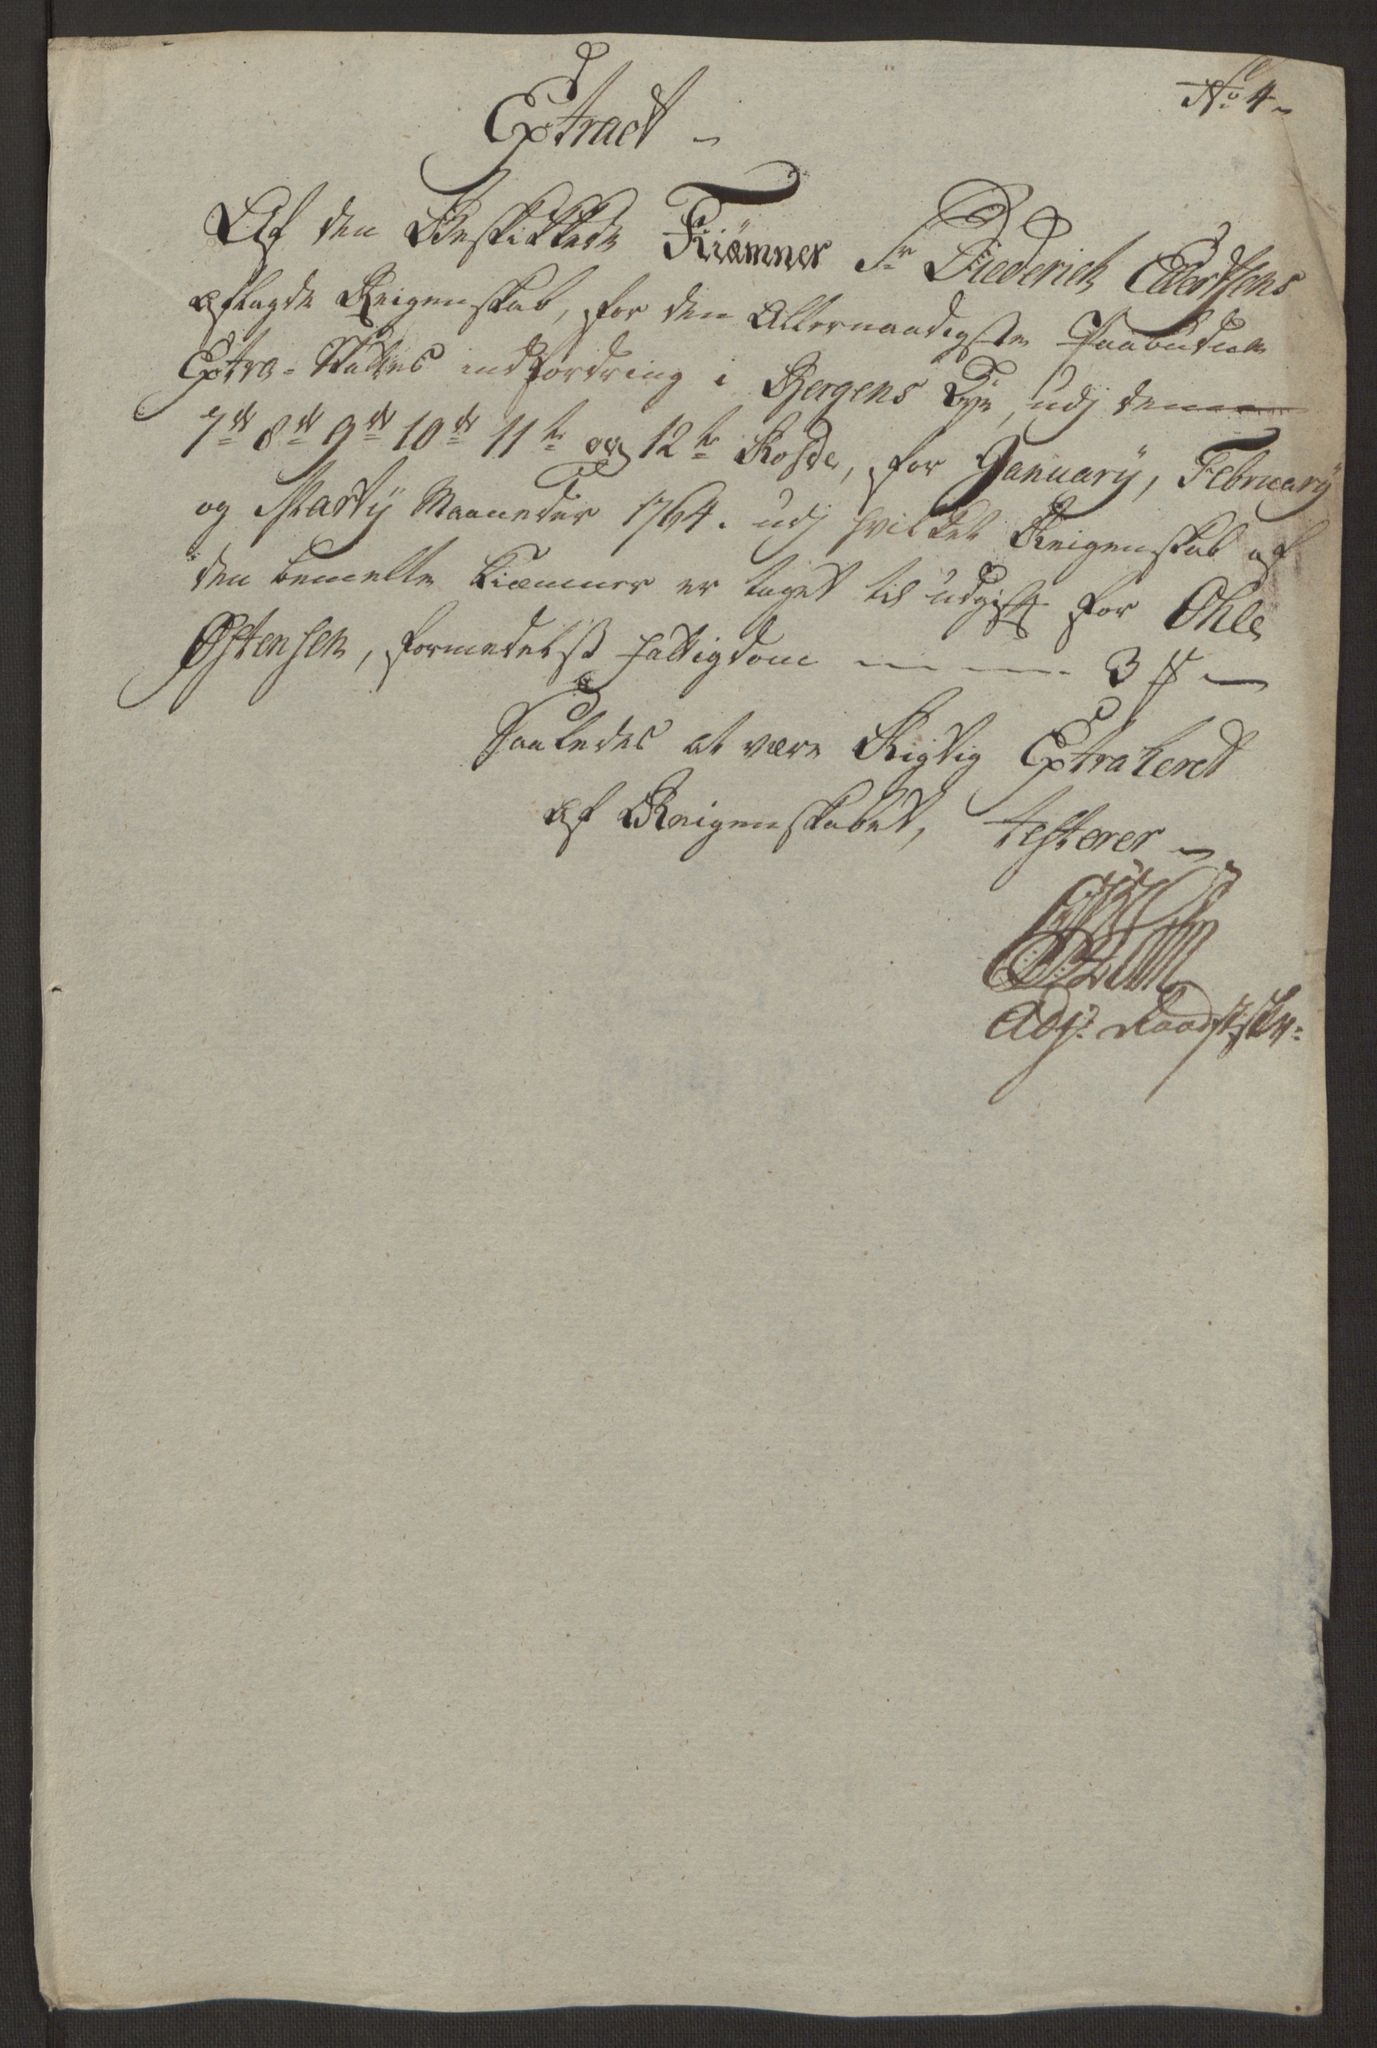 No 4
Extract
Af den Beskikkede Kiæmner Sr Diederich Edvertsens
aflagde Reigenskab, for den Allernaadigste Paabudne
Extra-Skattes indfordring i Bergens Bye, udj den
7de 8de 9de 10de 11te og 12te Rohde, for January, February
og Marty Maaneder 1764. udj hvilket Reigenskab af
den bemelte Kiæmner er taget til udgift for Ohle
Østensen, formedelst fattigdom 3 ß
Saaledes at være Rigtig Extraheret
af Reigenskabet, testerer
Adjt. Raadst. skr: